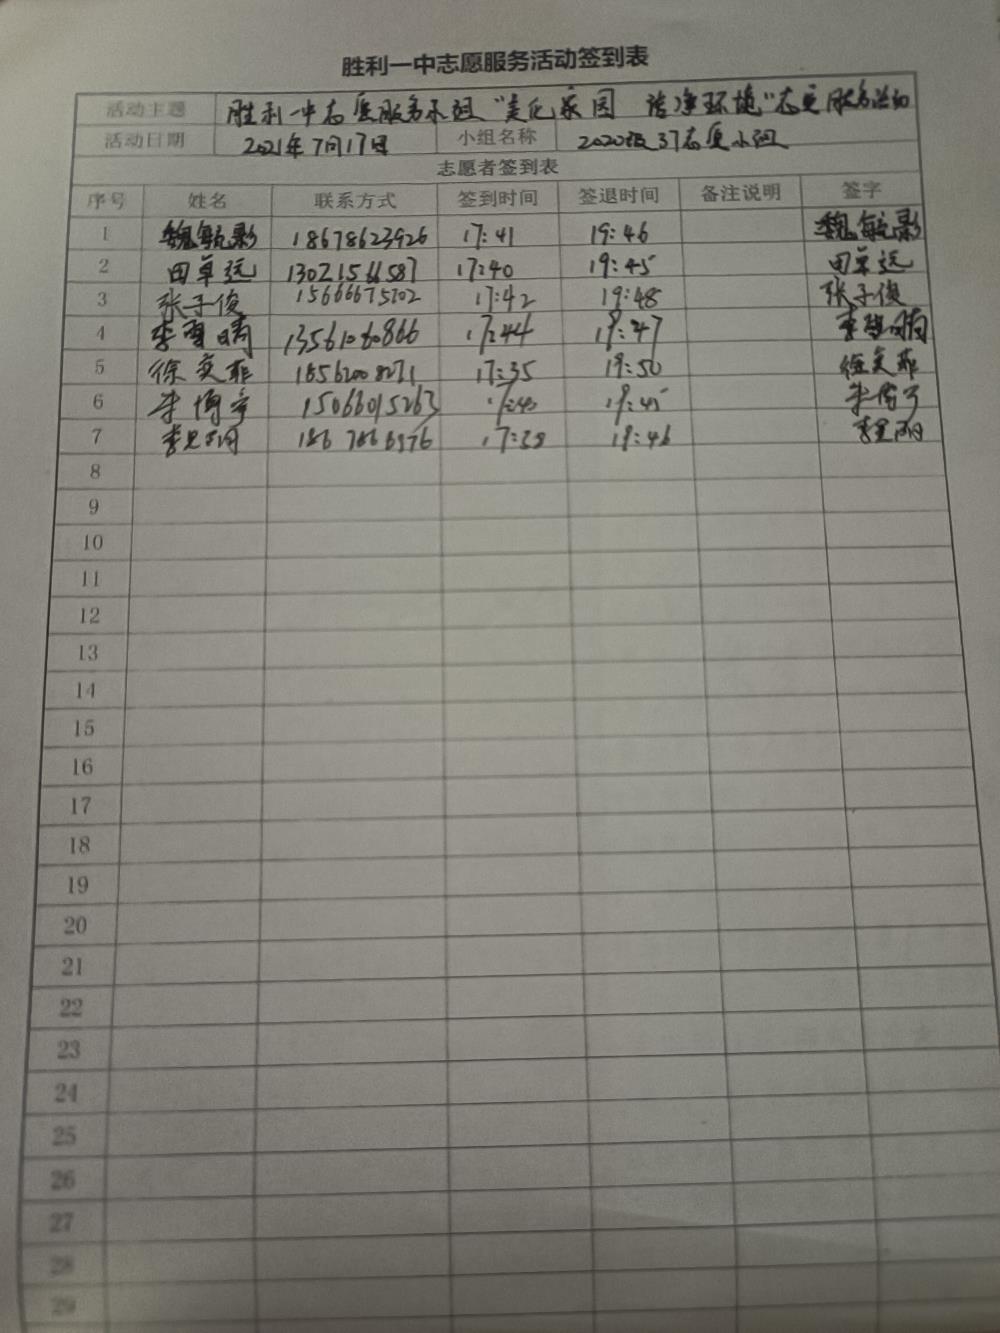 胜利一中志愿服务活动签到表
活动主题 胜利一中志愿服务小组“美化家园 洁净环境”志愿服务活动
活动日期 2021年7月17日 小组名称 2020级37志愿小组
志愿者签到表
序号 姓名 联系方式 签到时间 签退时间 备注说明 签字
1 魏毓影 18678623926 17:41 19:46 魏毓影
2 田卓远 13021566587 17:40 19:45 田卓远
3 张子俊 17:42 19:48 张子俊
4 13561060866 17:44 19:47
5 徐奕菲 18562008271 17:35 19:50 徐奕菲
6 15066015263 19:45
7 17:38 19:46
8
9
10
11
12
13
14
15
16
17
18
19
20
21
22
23
24
25
26
27
28
29